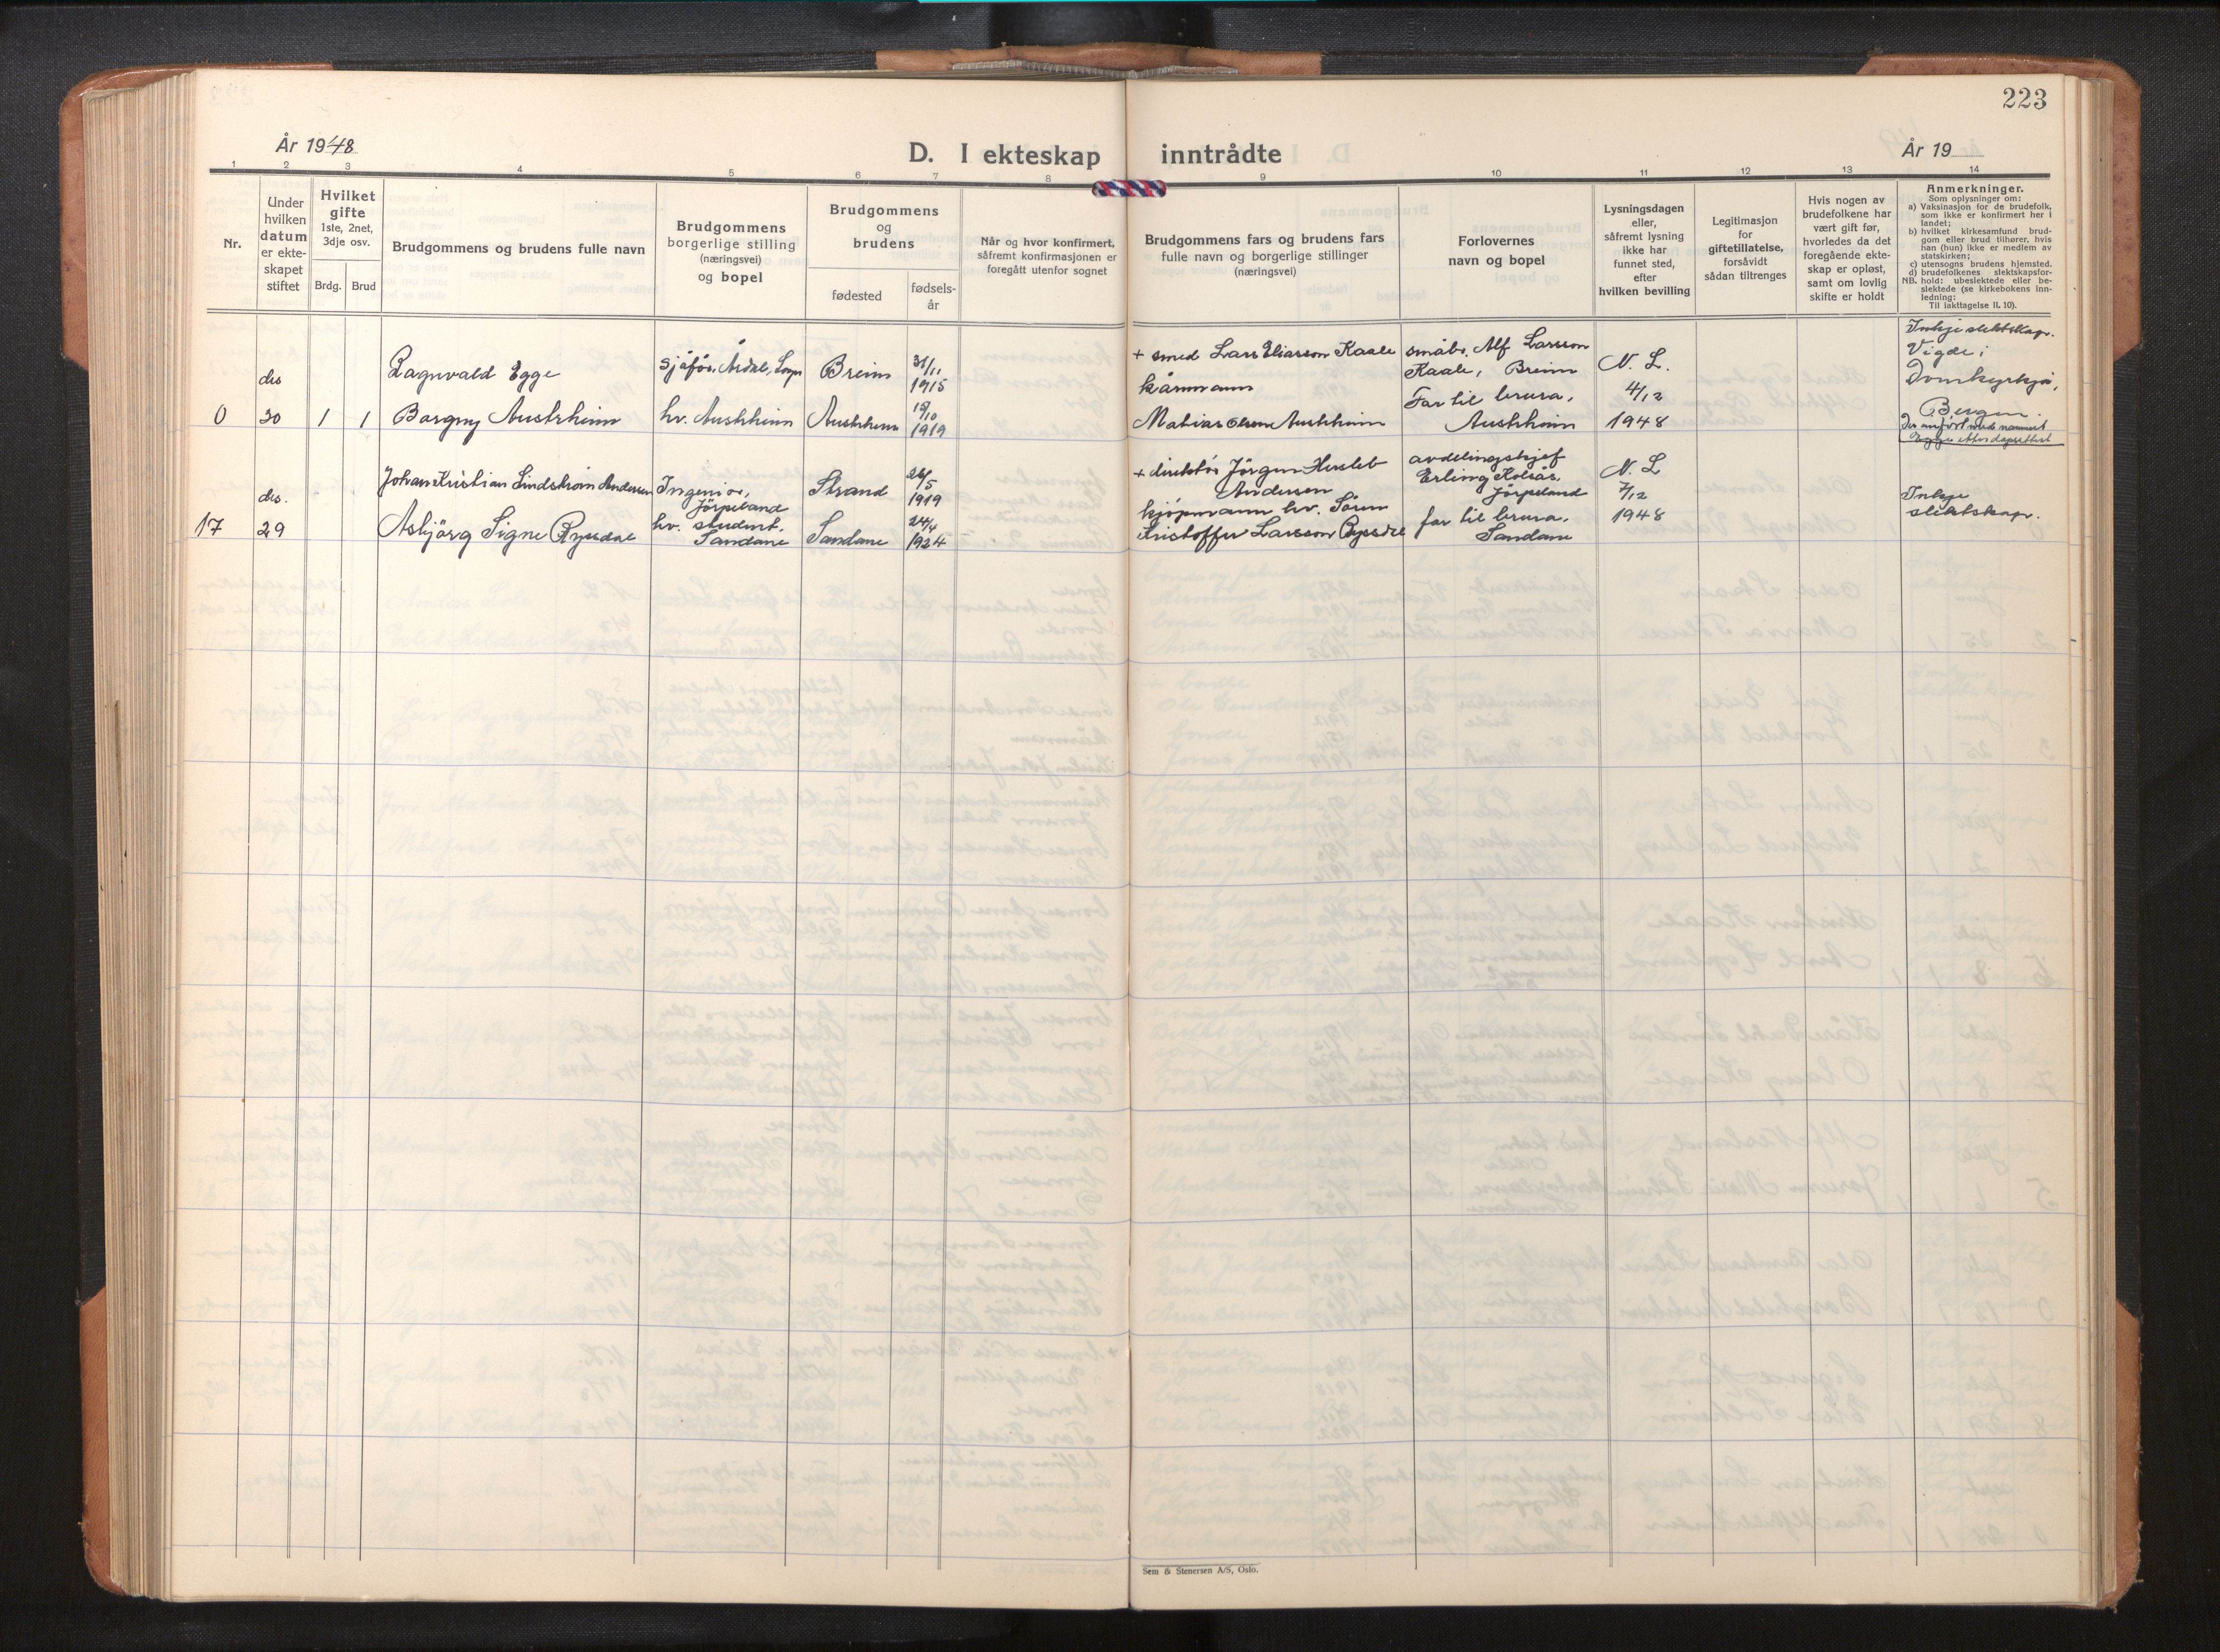 223
År 1948
D. I ekteskap inntrådte
År 19
1 2 3 4 5 6 7 8 9 10 11 12 13 14
Nr.
Under
hvilken
datum
er ekte-
skapet
stiftet
Hvilket
gifte
1ste, 2net,
3dje osv.
Brdg. Brud
Brudgommens og brudens fulle navn
Brudgommens
borgerlige stilling
(næringsvei)
og bopel
Brudgommens
og
brudens
fødested
fødsels-
år
Når og hvor konfirmert,
såfremt konfirmasjonen er
foregått utenfor sognet
Brudgommens fars og brudens fars
fulle navn og borgerlige stillinger
(næringsvei)
Forlovernes
navn og bopel
Lysningsdagen
eller,
såfremt lysning
ikke har
funnet sted,
efter
hvilken bevilling
Legitimasjon
for
giftetillatelse,
forsåvidt
sådan tiltrenges
Hvis nogen av
brudefolkene har
vært gift før,
hvorledes da det
foregående ekte-
skap er opløst,
samt om lovlig
skifte er holdt
Anmerkninger.
Som oplysninger om:
a) Vaksinasjon for de brudefolk,
som ikke er konfirmert her i
landet;
b) hvilket kirkesamfund brud-
gom eller brud tilhører, hvis
han (hun) ikke er medlem av
statskirken;
c) utensogns brudens hjemsted.
d) brudefolkenes slektskapsfor-
NB. hold: ubeslektede eller be-
slektede (se kirkebokens inn-
ledning:
Til iakttagelse II. 10).
0
des
30
1 1
Ragnvald Egge
Borgny Austrheim
Sjåfør, Årdal, Sogn
hv. Austrheim
Breim
Austrheim
31/11
1915
15/10
1919
+ smed Lars Eliasson Kaale
kårmann
Matias Olson Austrheim
småbr. Alf Larsson
Kaale, Breim
Far til brura,
Austrheim
N. L.
4/12
1948
Inkje slektskap.
Vigde i
Domkyrkja,
Bergen.
17
des.
29
Johan Kristian Lindstrøm Andersen
Asbjörg Signe Ryssdal
Ingeniør,
Jörpeland
hv. student.
Sandane
Strand
Sandane
26/5
1919
24/4
1924
+ direktør Jörgen Hersleb
Andersen
kjøpmann hv. Sören
Kristoffer Larsson Ryssdal
avdelingssjef
Erling Kolsås,
Jörpeland
far til brura.
Sandane
N. L
7/12
1948
Inkje
slektskap.
Sem & Stenersen A/S, Oslo.